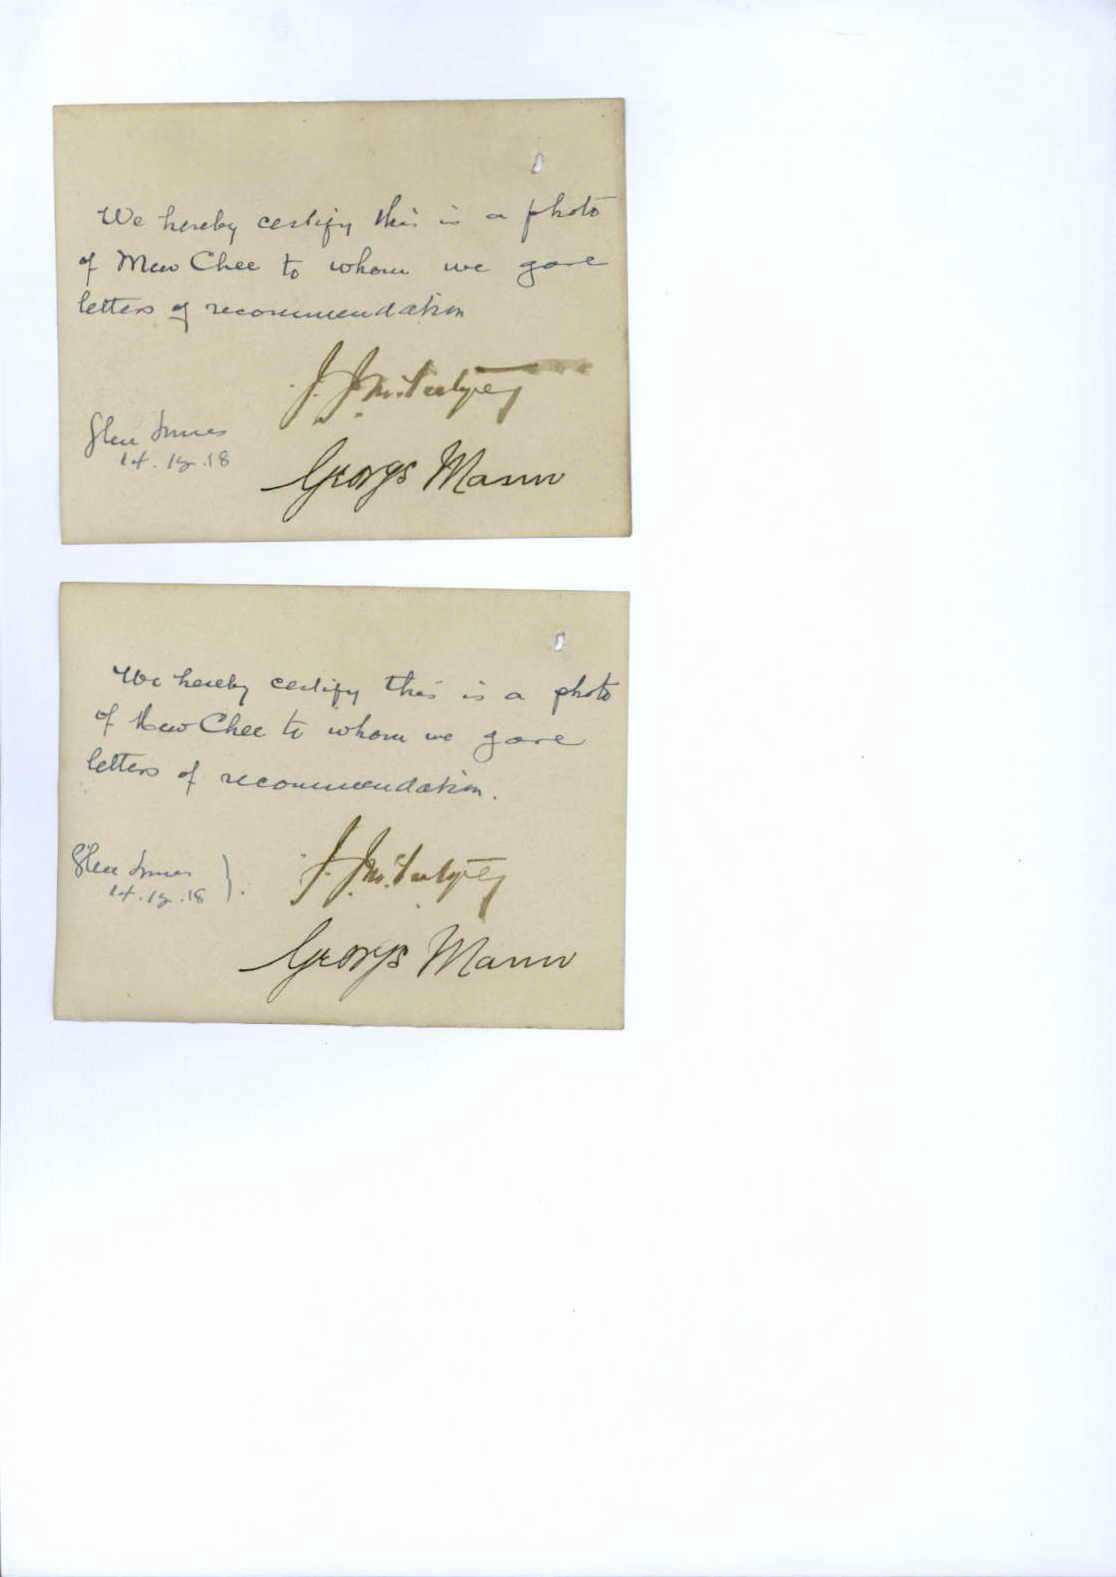 We hereby certify this is a photo
of Mew Chee to whom we gave
letters of recommendation
J. J.
Glen Innes
George Mann
We hereby certify this is a photo
of Mew Chee to whom we gave
letters of recommendation.
J. J.
Glen Innes
George Mann